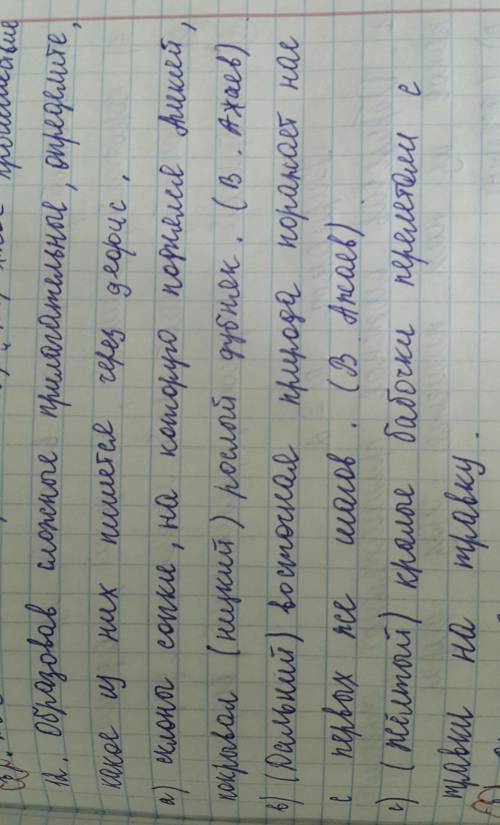 12. Образовав сложное прилагательное, определите,
какое из них пишется через дефис.
а) склоны сопки, на которую поднялся Алексей,
покрывал (низкий) рослой дубняк. (В. Ажаев)
в) (Дальний) восточная природа поражает нас
с первых же шагов. (В. Ажаев)
с) (жёлтый) крылые бабочки перелетали с
травки на травку.